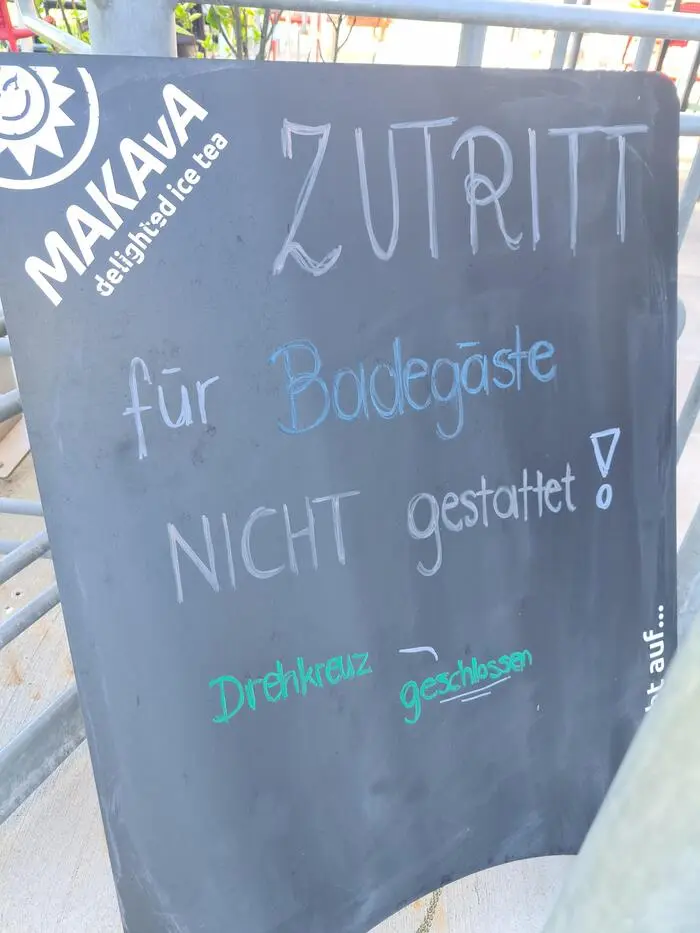 MAKAvA
delighted ice tea
ZUTRITT
für Badegäste
NICHT gestattet!
Drehkreuz geschlossen
auf...